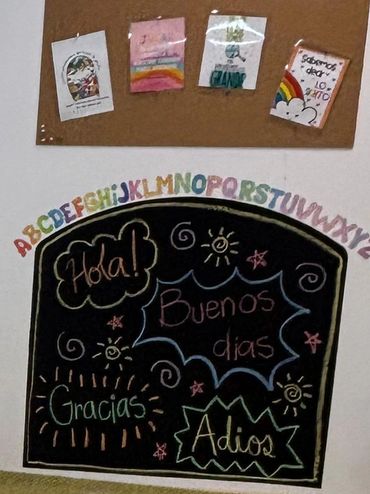 Sabemos
decir
LO
ABCDEFGHIJKLMNOPQRSTUVWXYZ
Hola!
Buenos
dias
Gracias
Adios